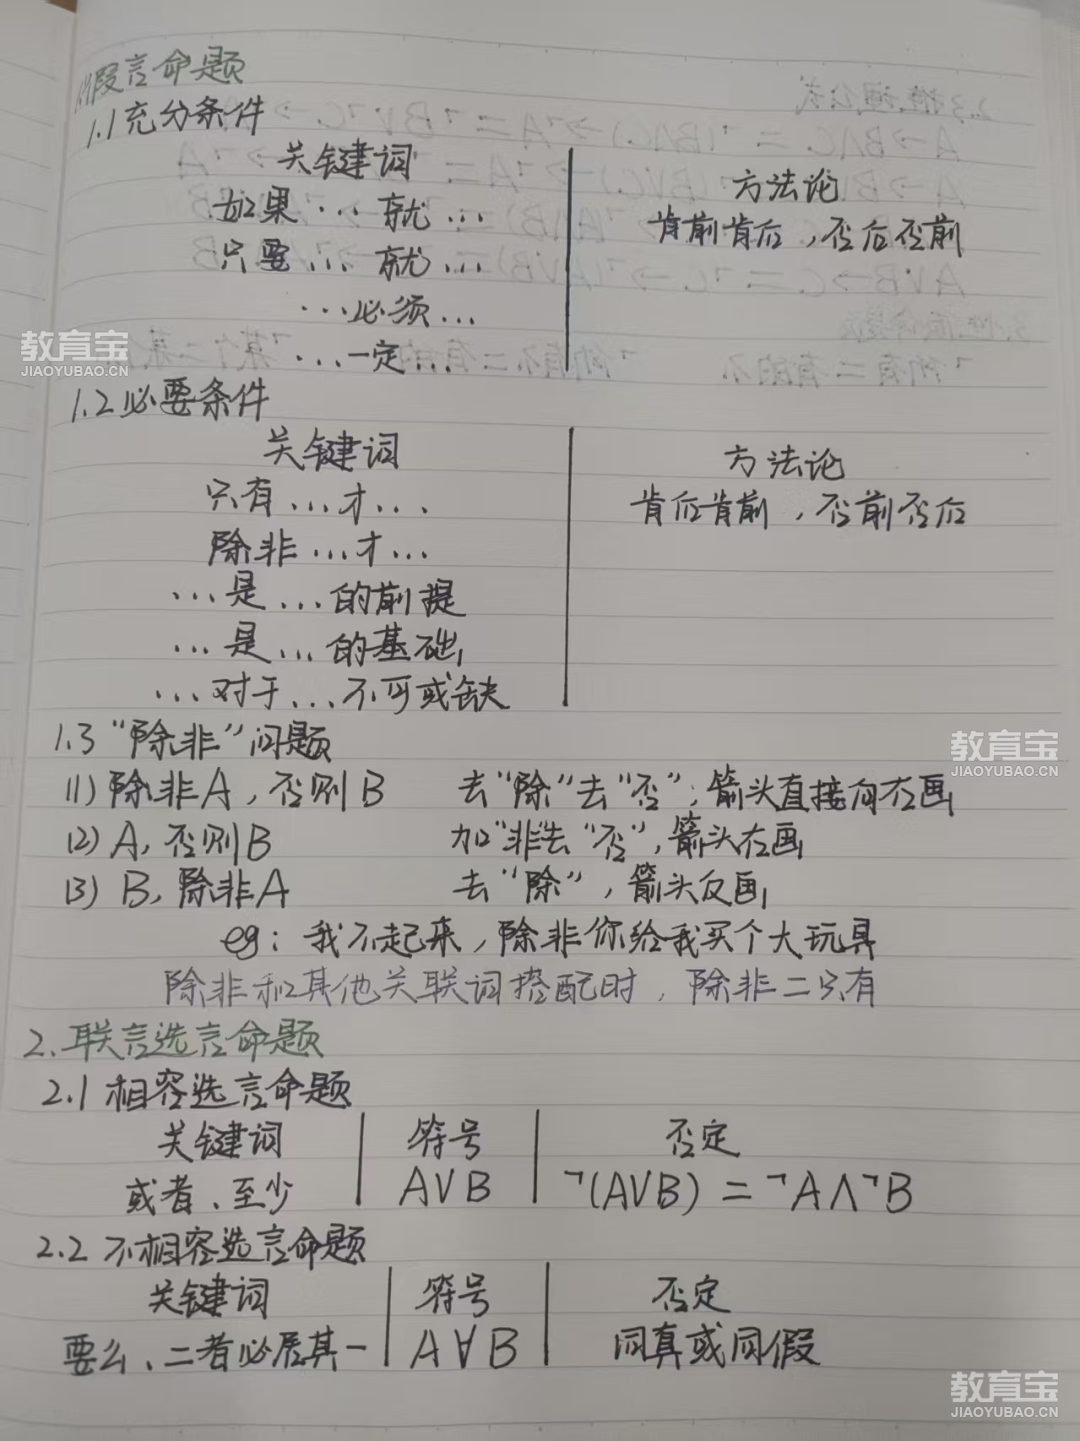 1.假言命题
1.1充分条件
关键词 方法论
如果…就… 肯前肯后，否后否前
只要…就…
…必须…
…一定…
教育宝
JIAOYUBAO.CN
1.2必要条件
关键词 方法论
只有…才… 肯后肯前，否前否后
除非…才…
…是…的前提
…是…的基础
…对于…不可或缺
1.3“除非”问题
教育宝
JIAOYUBAO.CN
(1)除非A，否则B 去“除”去“否”，箭头直接向右画
(2)A，否则B 加“非”去“否”，箭头右画
(3)B，除非A 去“除”，箭头反画
eg：我不起来，除非你给我买个大玩具
除非和其他关联词搭配时，除非=只有
2.联言选言命题
2.1相容选言命题
关键词 符号 否定
或者、至少 A∨B ¬(A∨B)=¬A∧¬B
2.2不相容选言命题
关键词 符号 否定
要么、二者必居其一 A∀B 同真或同假
教育宝
JIAOYUBAO.CN